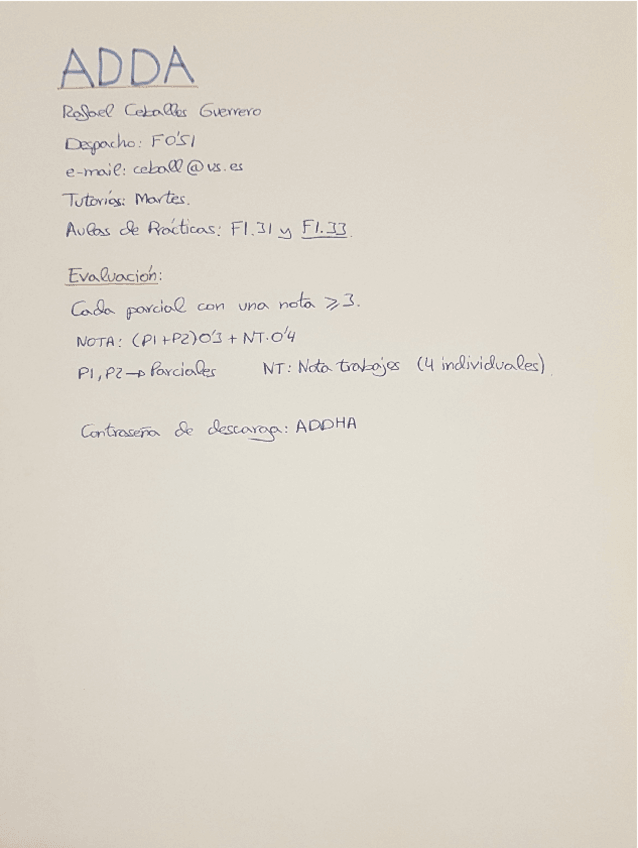 ADDA
Rafael Ceballos Guerrero
Despacho: F0'51
e-mail: ceball@us.es
Tutorías: Martes.
Aulas de Prácticas: F1.31 y F1.33.
Evaluación:
Cada parcial con una nota ≥3.
NOTA: (P1+P2)0'3 + NT·0'4
P1, P2→Parciales NT: Nota trabajos (4 individuales)
Contraseña de descarga: ADDHA